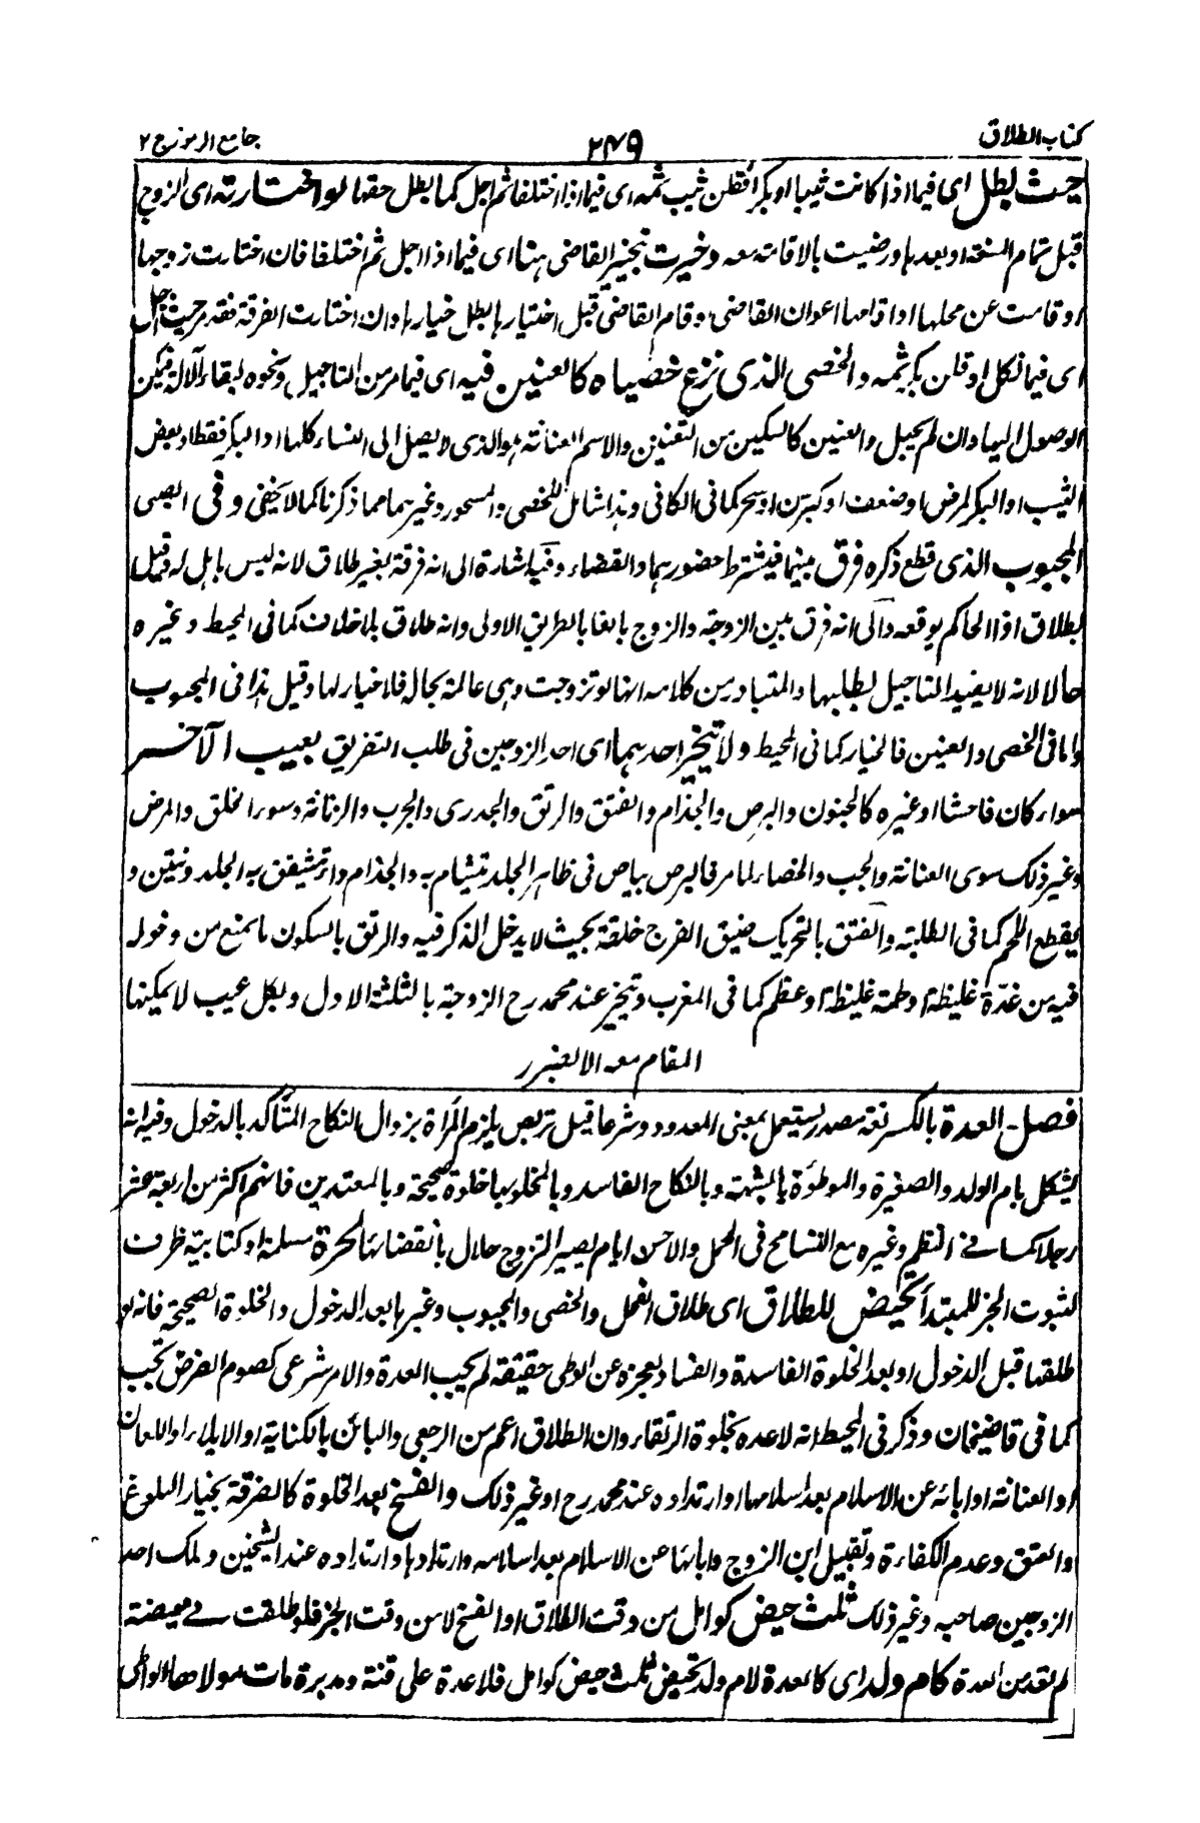 كتاب الطلاق ٢٤٩ جامع الرموز ج ٢
حيث بطل اى فيما اذا كانت ثيبا او بكرا فقلن ثيب ثمه اى فيما اذا اختلفا ثم اجل كما بطل حقها لو اختارته اى الزوج
قبل تمام السنة او بعدها ورضيت بالاقامة معه وخيرت بتخيير القاضى هنا اى فيما اذا اجل ثم اختلفا فان اختارت زوجها
او قامت عن محلها او اقامها اعوان القاضى او قام القاضى قبل اختيارها بطل خيارها وان اختارت الفرقة فقد مر حيث اجل
اى فيما نكل او قلن بكر ثمه والخصى الذى نزع خصياه كالعنين فيه اى فيما مر من التاجيل ونحوه لبقاء الآلة فيمكن
الوصول اليها وان لم يحبل والعنين كالسكين من التعنين والاسم العنانة هو الذى لا يصل الى النساء كلها او البكر فقط او بعض
الثيب او البكر لمرض او ضعف او كبر سن او سحر كما فى الكافى وهذا شامل للخصى والمسحور وغيرهما مما ذكرنا كما لا يخفى وفى الصبى
المجبوب الذى قطع ذكره فرق بينهما فيشترط حضورهما والقضاء وفيه اشارة الى انه فرقة بغير طلاق لانه ليس باهل له وقيل
بطلاق اذا الحاكم يوقعه والى انه فرق بين الزوجة والزوج بالغا بالطريق الاولى وانه طلاق بلا خلاف كما فى المحيط وغيره
حالا لانه لا يفيد التاجيل بطلبها والمتبادر من كلامه انها لو تزوجت وهى عالمة بحاله فلا خيار لها وقيل هذا فى المجبوب
واما فى الخصى والعنين فالخيار كما فى المحيط ولا يتخير احدهما اى احد الزوجين فى طلب التفريق بعيب الآخر
سواء كان فاحشا او غيره كالجنون والبرص والجذام والفتق والرتق والجدرى والجرب والزمانة وسوء الخلق والمرض
وغير ذلك سوى العنانة والجب والخصاء لما مر فالبرص بياض فى ظاهر الجلد يتشام به والجذام داء تشقق به الجلد وينتن و
يقطع اللحم كما فى الطلبة والفتق بالتحريك ضيق الفرج خلقة بحيث لا يدخل الذكر فيه والرتق بالسكون ما يمنع من دخوله
فيه من غدة غليظة او لحمة غليظة او عظم كما فى المغرب وتخير عند محمد رح الزوجة بالثلثة الاول وبكل عيب لا يمكنها
المقام معه الا بضرر
فصل العدة بالكسر لغة مصدر يستعمل بمعنى المعدود وشرعا قيل تربص يلزم المرأة بزوال النكاح المتأكد بالدخول وفيه انه
يشكل بام الولد والصغيرة والموطوءة بالشبهة وبالنكاح الفاسد وبالمخلو بها خلوة صحيحة وبالمعتدين فانهم اكثر من اربعة عشر
رجلا كما فى النظم وغيره مع التسامح فى الحمل والاحسن ايام يصير التزوج حلال بانقضائها لحرة مسلمة او كتابية ظرف
لثبوت الخبر للمبتدأ تحيض للطلاق اى طلاق الفحل والخصى والمجبوب وغيرها بعد الدخول والخلوة الصحيحة فانه لو
طلقها قبل الدخول او بعد الخلوة الفاسدة والفساد بعجزه عن الوطى حقيقة لم يجب العدة والامر شرعى كصوم الفرض تجب
كما فى قاضيخان وذكر فى المحيط انه لا عدة بخلوة الرتقاء وان الطلاق اعم من الرجعى والبائن بالكناية او الايلاء او اللعان
او العنانة او ابائه عن الاسلام بعد اسلامها او ارتداده عند محمد رح او غير ذلك والفسخ بعد الخلوة كالفرقة بخيار البلوغ
والعتق وعدم الكفاءة وتقبيل ابن الزوج وابائها عن الاسلام بعد اسلامه وارتدادها وارتداده عند الشيخين وملك احد
الزوجين صاحبه وغير ذلك ثلث حيض كوامل من وقت الطلاق او الفسخ لا من وقت الخبر فلو طلقت فى حيضة
لم تعد من العدة كام ولد اى كالعدة لام ولد تحيض ثلث حيض كوامل فلا عدة على قنة ومدبرة مات مولاهما الواطى